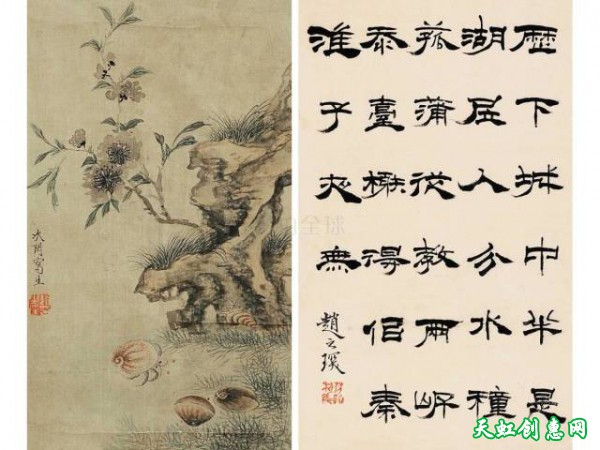 次閑寫生
歷下城中半是
湖居人分水種
菰蒲從教兩岸
臺榭得佀秦
淮子夜無
趙之琛
全球
天虹创惠网